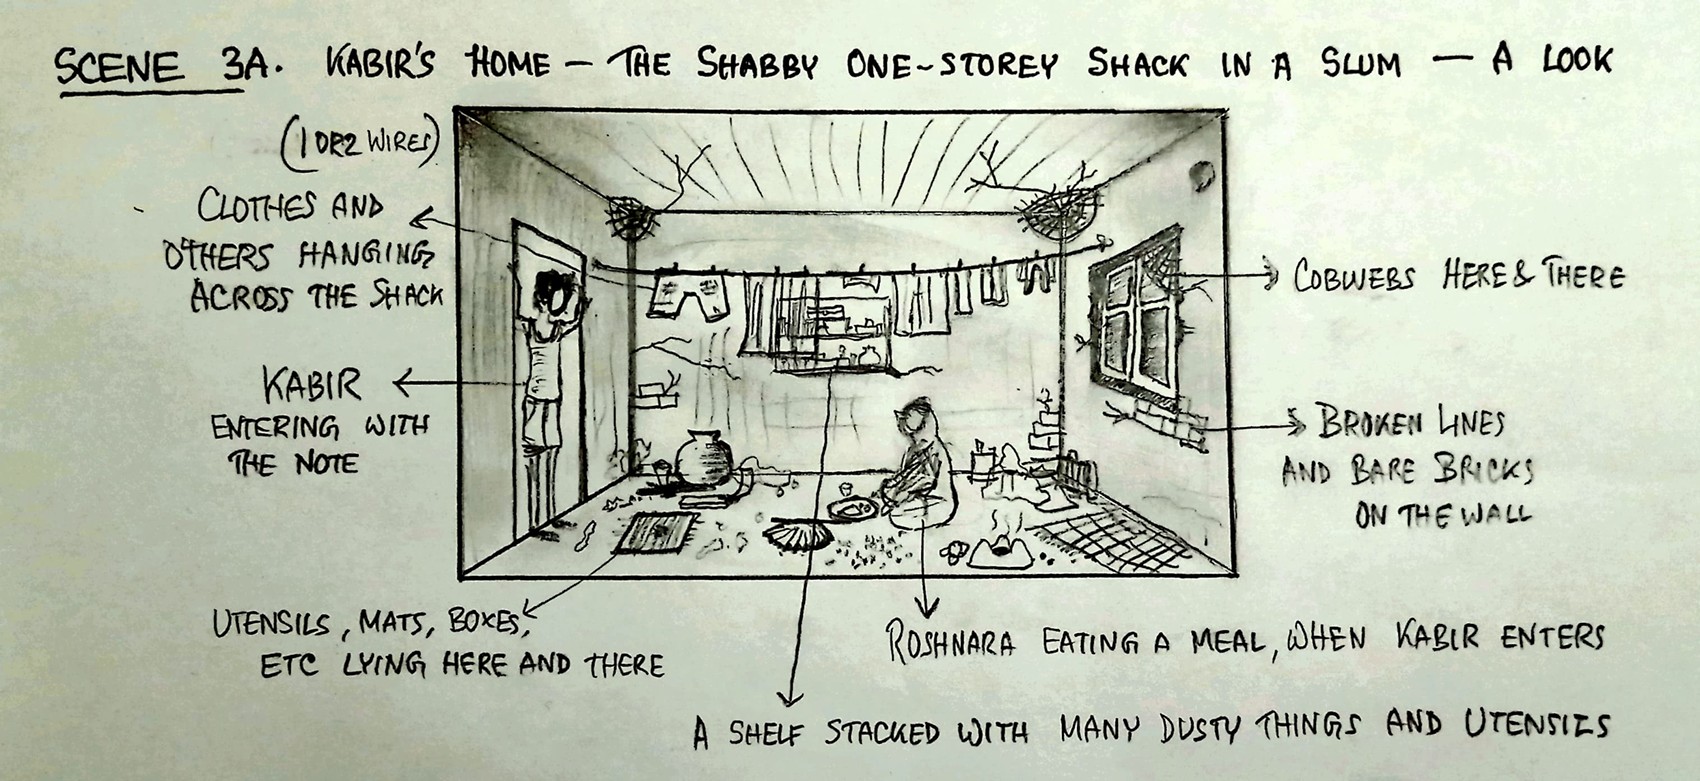 SCENE 3A. KABIR'S HOME — THE SHABBY ONE-STOREY SHACK IN A SLUM — A LOOK
(1 OR 2 WIRES)
CLOTHES AND
OTHERS HANGING
ACROSS THE SHACK
KABIR
ENTERING WITH
THE NOTE
COBWEBS HERE & THERE
BROKEN LINES
AND BARE BRICKS
ON THE WALL
UTENSILS, MATS, BOXES,
ETC LYING HERE AND THERE
ROSHNARA EATING A MEAL, WHEN KABIR ENTERS
A SHELF STACKED WITH MANY DUSTY THINGS AND UTENSILS